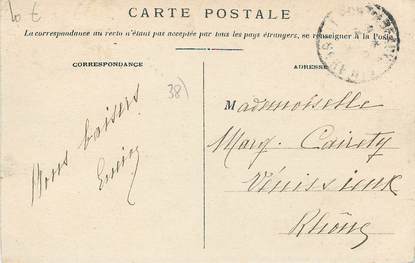 10 €
CARTE POSTALE
La correspondance au recto n'étant pas acceptée par tous les pays étrangers, se renseigner à la Poste
CORRESPONDANCE
ADRESSE
38)
Bons baisers
Mademoiselle
Marg. Cairety
Vénissieux
Rhône